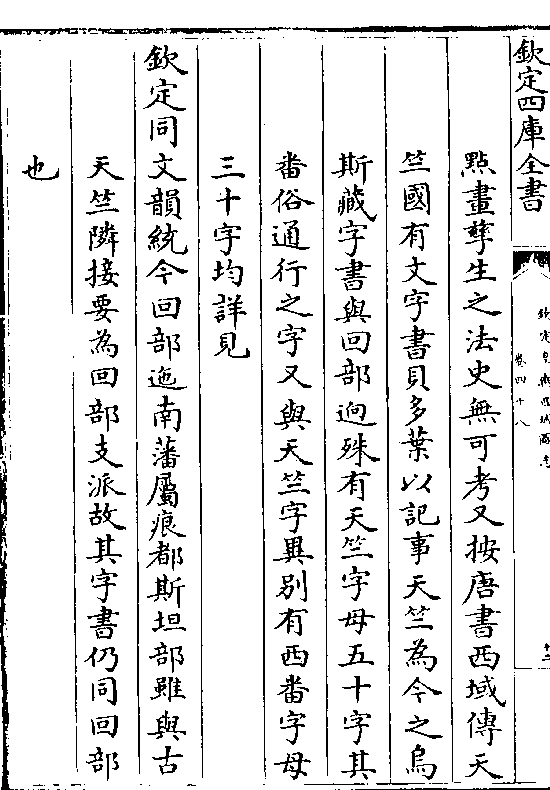 欽定四庫全書
欽定皇輿西域圖志
卷四十八
點畫孳生之法史無可考又按唐書西域傳天
竺國有文字書貝多葉以記事天竺為今之烏
斯藏字書與回部迥殊有天竺字母五十字其
番俗通行之字又與天竺字異别有西番字母
三十字均詳見
欽定同文韻統今回部迤南藩屬痕都斯坦部雖與古
天竺隣接要為回部支派故其字書仍同回部
也